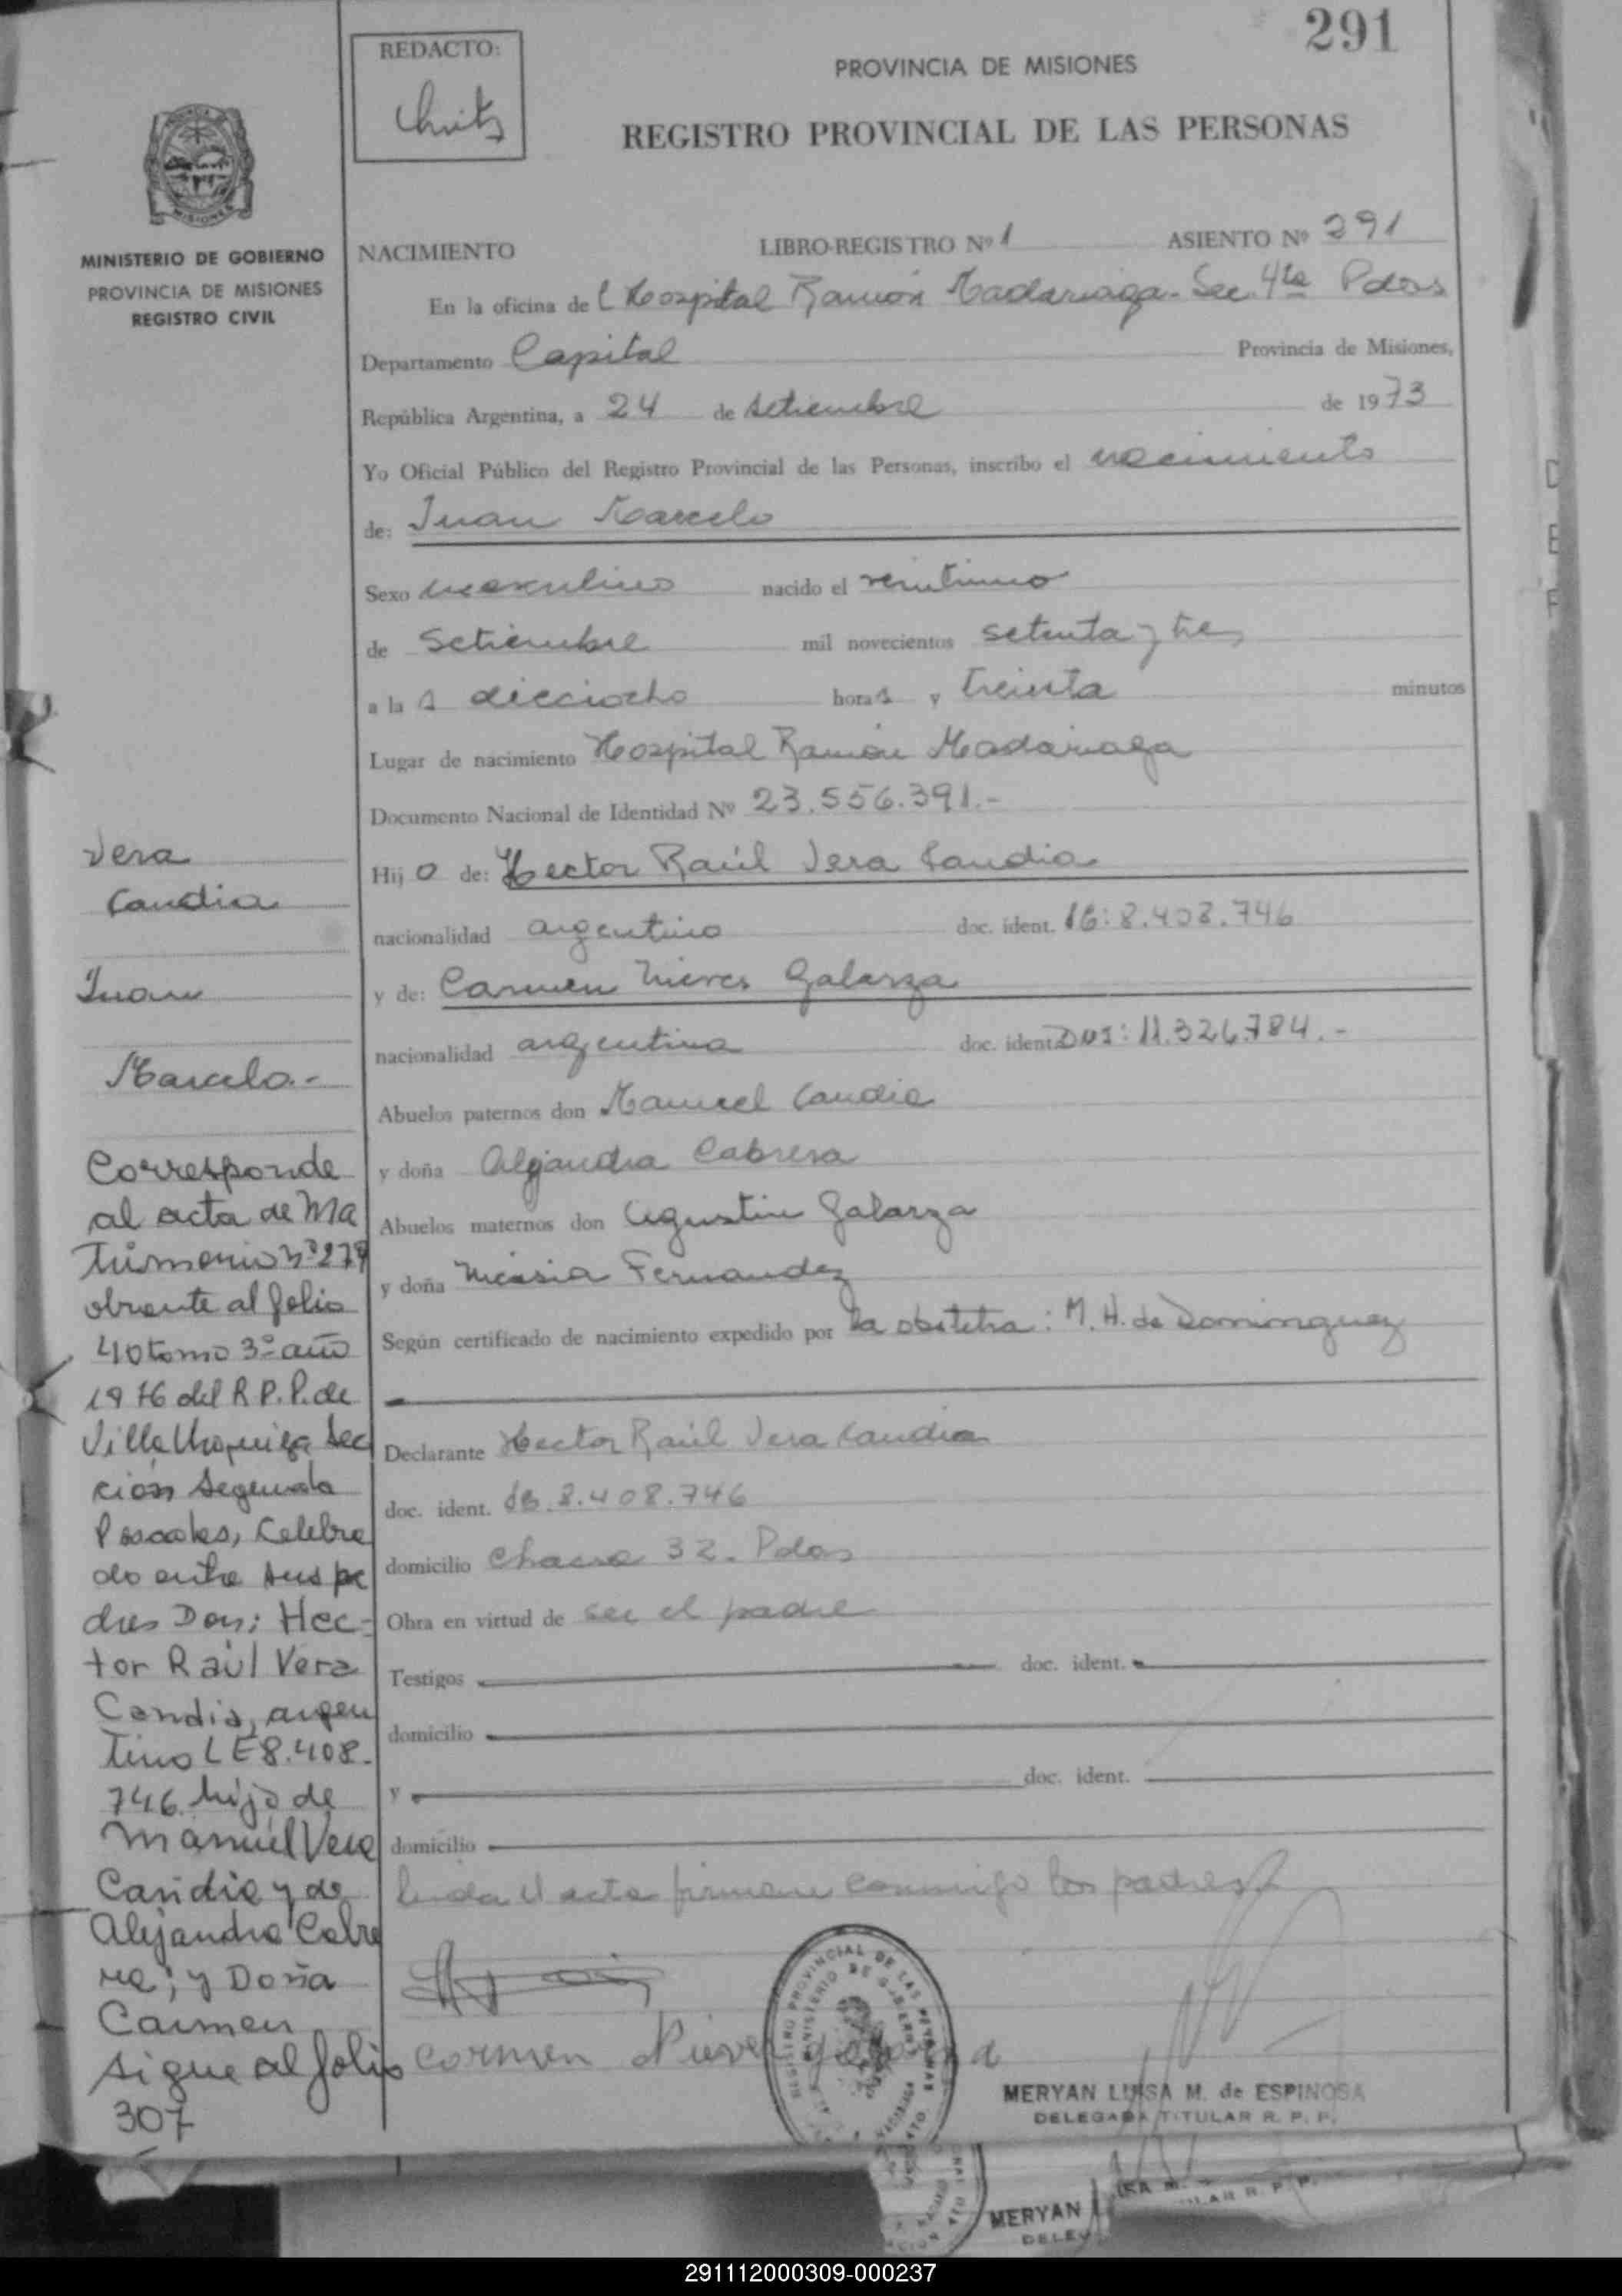 291
REDACTO:
PROVINCIA DE MISIONES
REGISTRO PROVINCIAL DE LAS PERSONAS
MINISTERIO DE GOBIERNO
PROVINCIA DE MISIONES
REGISTRO CIVIL
NACIMIENTO LIBRO-REGISTRO Nº 1 ASIENTO Nº 291
En la oficina del Hospital Ramón Madariaga - Sec. 4ta Pdas
Departamento Capital Provincia de Misiones,
República Argentina, a 24 de setiembre de 1973
Yo Oficial Público del Registro Provincial de las Personas, inscribo el nacimiento
de: Juan Marcelo
Sexo masculino nacido el veintiuno
de Setiembre mil novecientos setenta y tres
a la s dieciocho hora s y treinta minutos
Lugar de nacimiento Hospital Ramón Madariaga
Documento Nacional de Identidad Nº 23.556.391.-
Hij o de: Hector Raúl Vera Candia
nacionalidad argentino doc. ident. 8.408.746
y de: Carmen Nieves Galarza
nacionalidad argentina doc. ident. DNI: 11.326.784.-
Abuelos paternos don Manuel Candia
y doña Alejandra Cabrera
Abuelos maternos don Agustin Galarza
y doña Nicasia Fernandez
Según certificado de nacimiento expedido por la obstetra: M. H. de Dominguez
Declarante Hector Raúl Vera Candia
doc. ident. 8.408.746
domicilio Chacra 32 - Pdas
Obra en virtud de ser el padre
Testigos doc. ident.
domicilio
y doc. ident.
domicilio
Leida el acta firman conmigo los padres
Carmen Nieve
MERYAN LUISA M. de ESPINOSA
DELEGADA TITULAR R. P. P.
Vera
Candia
Juan
Marcelo.-
Corresponde
al acta de Ma
trimonio Nº 279
obrante al folio
40 tomo 3º año
1976 del R.P.P. de
Villa Urquiza Sec
ción Segunda
Posadas, Celebra
do entre sus pa
dres Don: Hec-
tor Raúl Vera
Candia, argen
tino LE 8.408.
746. hijo de
Manuel Vera
Candia y de
Alejandra Cabre
ra; y Doña
Carmen
sigue al folio
307
MERYAN
291112000309-000237